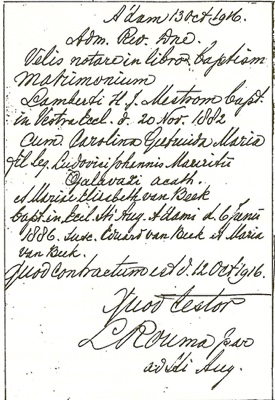 A'dam 13 Oct. 1916.
Adm. Rev. Dne.
Velis notare in libro baptism
matrimonium
Lamberti H. J. Mestrom bapt.
in Vestra Eccl. d. 20 Nov. 1882
cum Carolina Gertruida Maria
fil. leg. Ludovici Johannis Mauritii
Galavazi acath.
et Mariae Elisabeth van Beek
bapt. in Eccl. Sti Aug. A'dami d. 6 Junii
1886. Susc. Eduard van Beek et Maria
van Beek.
Quod contractum est d. 12 Oct. 1916.
Quod testor
L Rouma par
ad Sti Aug.